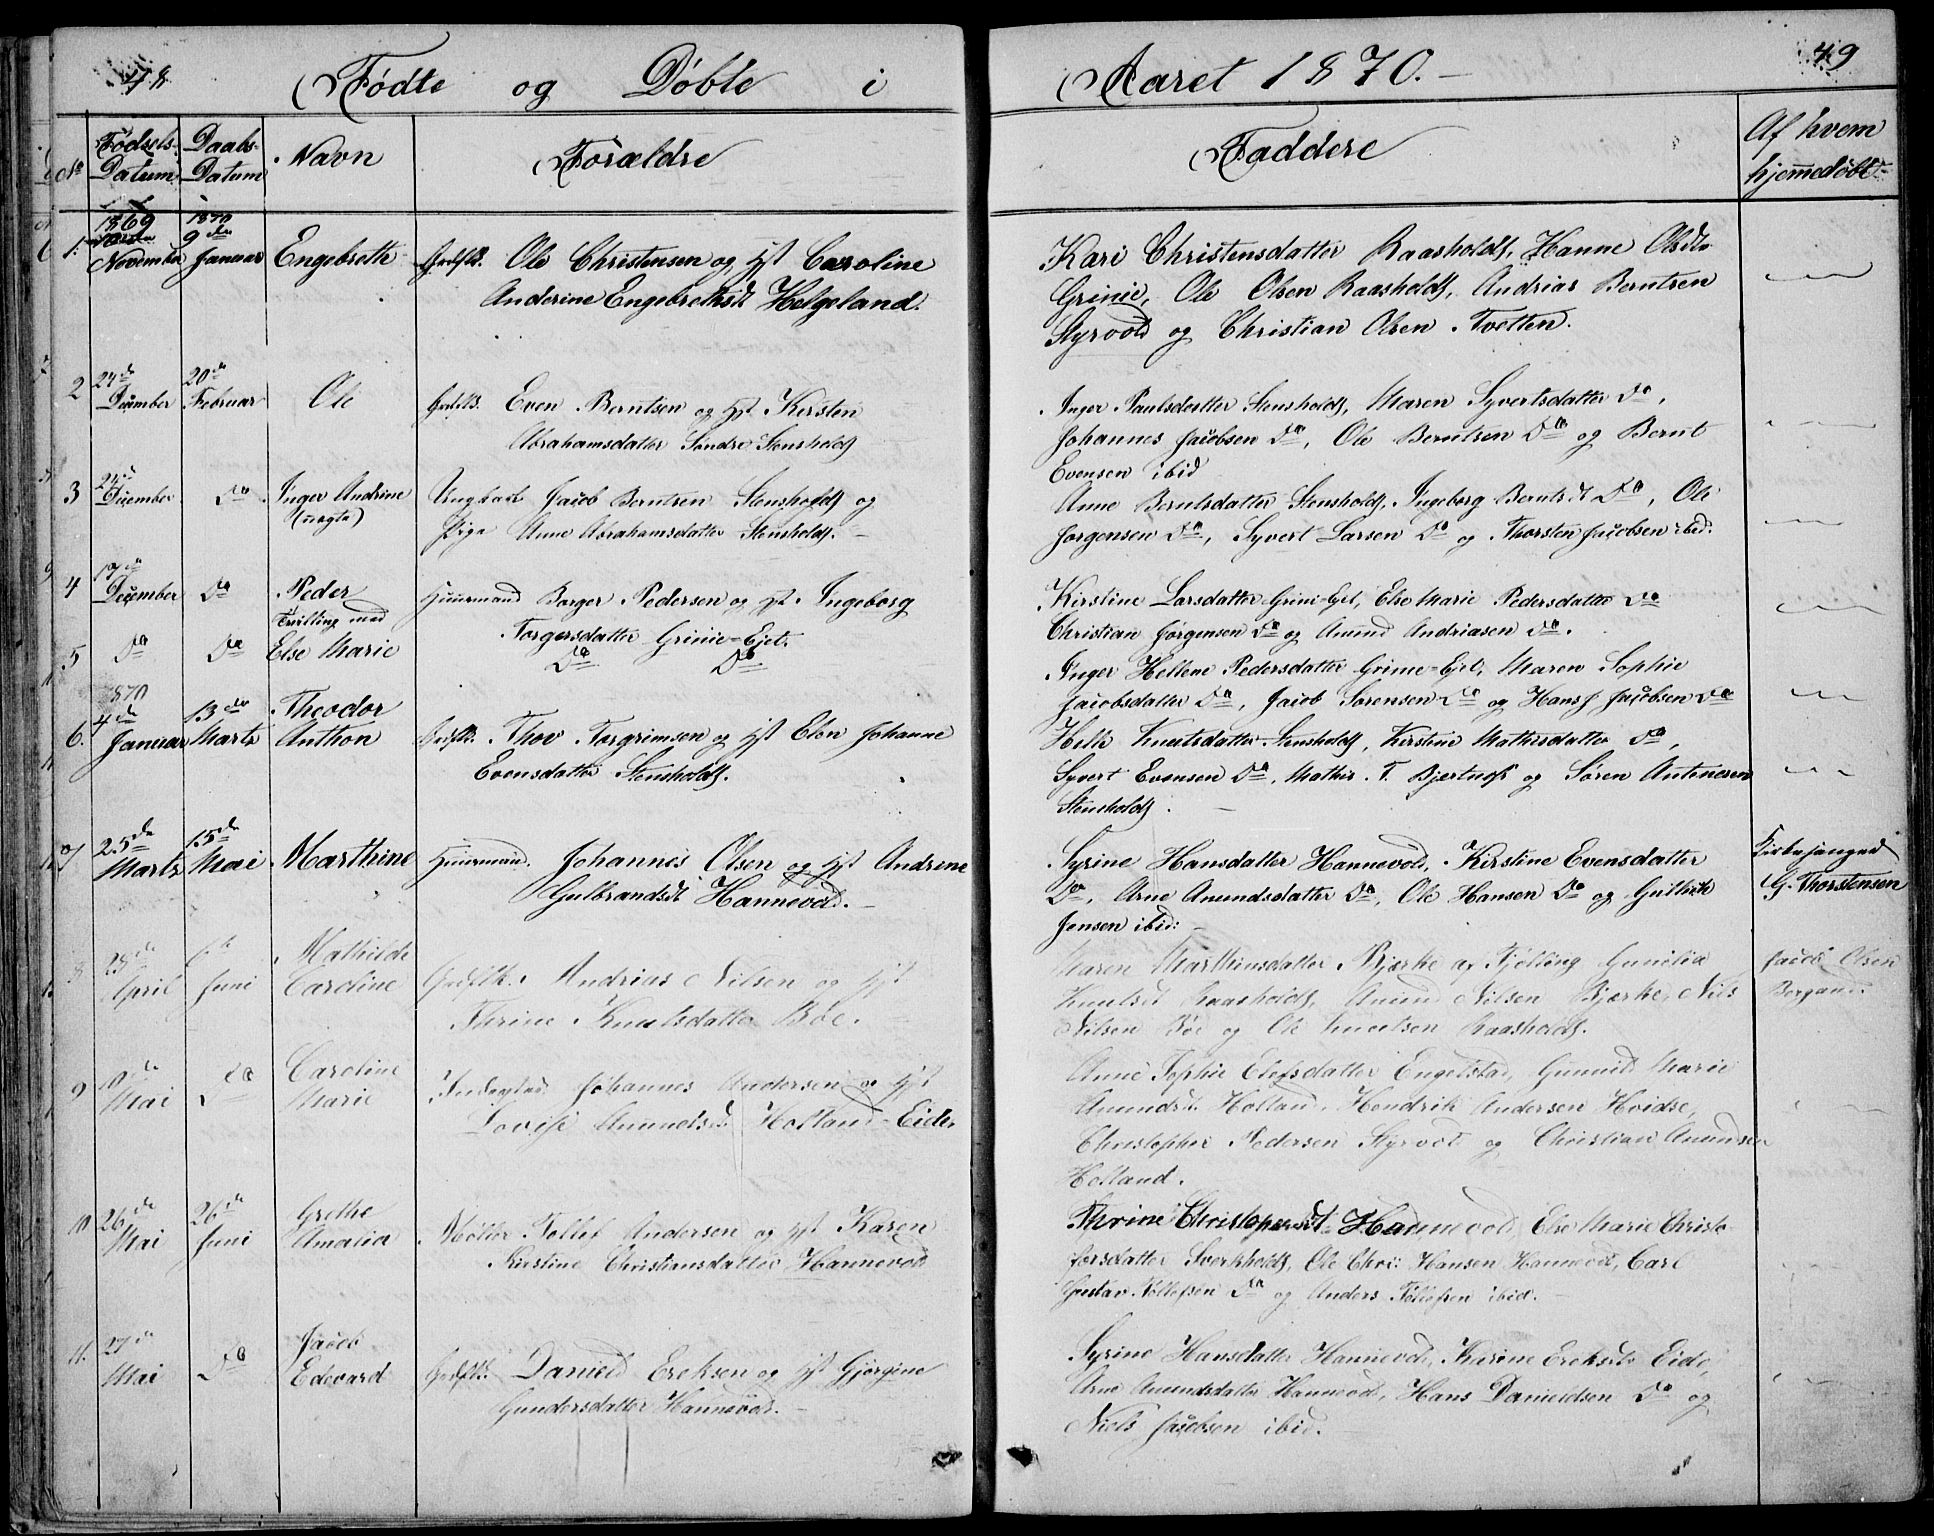 48 Fødte og Døbte i Aaret 1870. 49
No Fødsels-Datum Daabs-Datum Navn Forældre Faddere Af hvem hjemmedøbt
1869 1870
1. November 9de Januar Engebreth Gdfstb. Ole Christensen og Hst Caroline
Anderine Engebrethsdt Helgeland.
Kari Christensdatter Raasholdt, Hanne Olsdtr
Grinie, Ole Olsen Raasholdt, Andrias Berntsen
Styrvold og Christian Olsen Tvetten.
2 24de December 20de Februar Ole Gdfstb. Even Berntsen og Hst Kirsten
Abrahamsdatter Søndre Stensholdt
Inger Paulsdatter Stensholdt, Maren Syvertsdatter Do,
Johannes Jacobsen Do, Ole Berntsen Do og Bernt
Evensen ibid
3 24de December Do Inger Andrine Ungkarl Jacob Berntsen Stensholdt og
(uægte) Pige Anne Abrahamsdatter Stensholdt.
Anne Berntsdatter Stensholdt, Ingeborg Berntsdt Do, Ole
Jørgensen Do, Syvert Larsen Do og Thorsten Jacobsen ibid:
4 December Do Peder Huusmand Borger Pedersen og Hst Ingeborg
Tvilling med Torgersdatter Grinie-Ejet.
5 Do Do Else Marie Do Do
Kirstine Larsdatter Grini-Ejet, Else Marie Pedersdatter Do
Christian Jørgensen Do og Amund Andriasen Do.
Inger Hellene Pedersdatter Grinie-Ejet, Maren Sophie
Jacobsdatter Do, Jacob Sørensen Do og Hans J. Jacobsen Do
1870
6. 4de Januar 13de Marts Theodor
Anthon Gdfstb. Thov Torgrimsen og Hst Elen Johanne
Evensdatter Stensholdt.
Helle Knutsdatter Stensholdt, Kirstine Mathisdatter Do,
Syvert Evensen Do, Mathis T. Bjærtnæs og Søren Antonesen
Stensholdt.
7 25de Marts 15de Mai Marthine Huusmand. Johannes Olsen og Hst Andrine
Gulbrandsdt Hannevold.
Syrine Hansdatter Hannevold, Kirstine Evensdatter
Do, Arne Amundsdatter Do, Ole Hansen Do og Gullik
Jensen ibid:
Kirkesanger
G. Thorstensen
8 28de April 6te Juni Mathilde
Caroline Gdfstb. Andrias Nilsen og Hst
Thrine Knutsdatter Bøe.
Maren Marthinsdatter Bjerke af Fjelling Gunilla
Knutsdt Raasholdt, Amund Nilsen Bjerke, Nils
Nilsen Bøe og Ole Knutsen Raasholdt.
Jacob Olsen
9 10de Mai Do Caroline
Marie Inderstad Johannes Andersen og Hst
Lovise Amundsdt Holland-Eide
Anne Sophie Elefsdatter Engelstad, Gunnild Marie
Amundsdt Holland, Hendrik Andersen Hvidse,
Christopher Pedersen Styrvold og Christian Amundsen
Holland.
10 26de Mai 26de Juni Grethe
Amalia Møller Tollef Andersen og Hst Karen
Kirstine Christiansdatter Hannevold
Thrine Christopersdt Hannevold, Else Marie Christo-
fersdatter Sverkholdt, Ole Chri: Hansen Hannevold, Carl
Gustav Tollefsen Do og Anders Tollefsen ibid.
11. 27de Mai Do Jacob
Edevard Gdfstb. Danield Ereksen og Hst Gjørgine
Gundersdatter Hannevold.
Syrine Hansdatter Hannevold, Karine Ereksdtr Eide,
Arne Amundsdatter Hannevold, Hans Danieldsen Do og
Niels Jacobsen ibid.